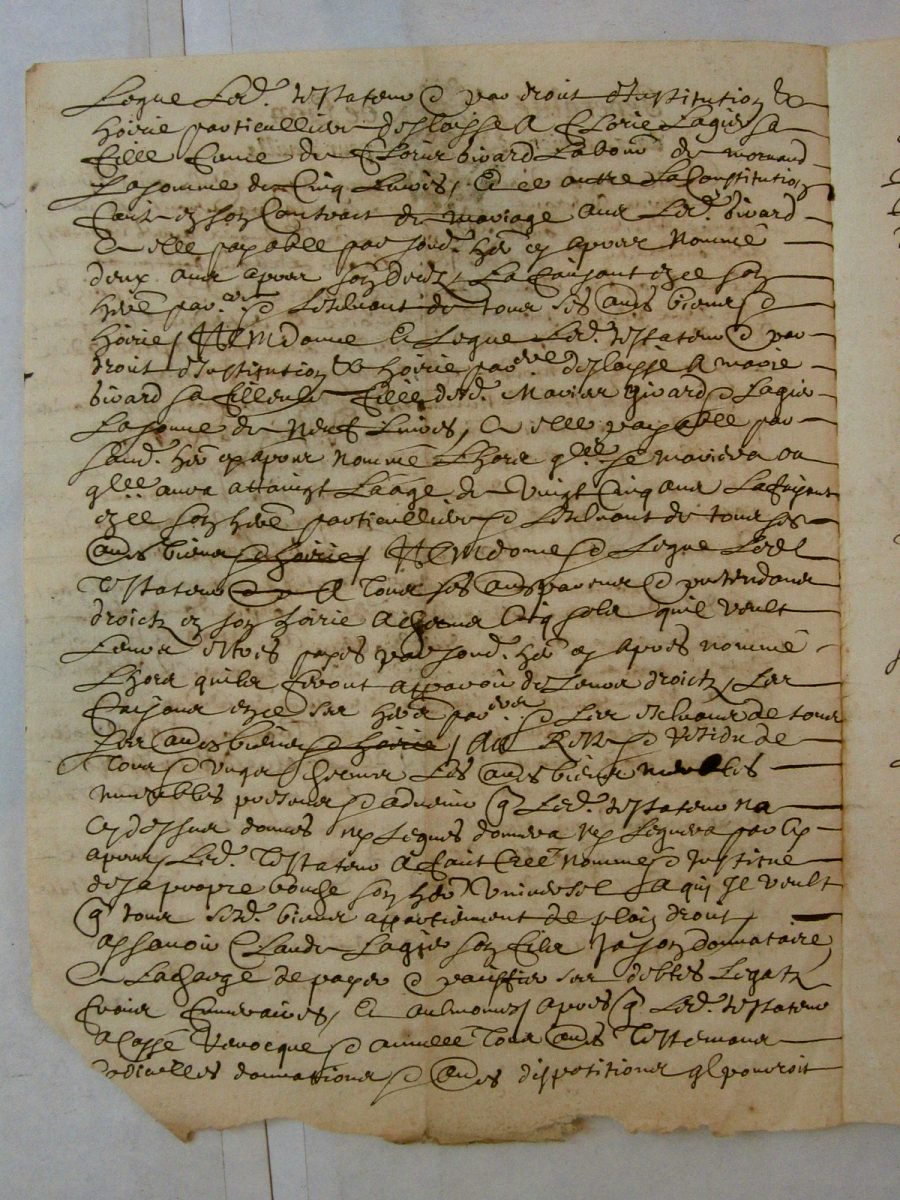 Legue Led. testateur & par droit dinstitution &
hoirie particulliere deslaisse A Clorie Lagier sa
fille femme de Cloeur bivard Labour de mornand
La somme de Cinq Livres, Et ce outre La Constitution
faicte en son Contrait de mariage avec Led. bivard
& icelle payable par sond. her cy apres nommé
deux ans apres son decez, La faisant icelle son
herē par. & Lexcluant de tous ses aues biens &
hoirie / ITEM donne & Legue Led. testateur & par
droit dinstitution & hoirie par deslaisse A marie
bivard sa filleule fille dud. bivard & Lagier
La somme de Neuf Livres, & icelle payable par
sond. her cy apres nommé Lhors qlle se mariera ou
qlle aura attaingt Laage de Vingt Cinq ans La faisant
icelle son herē particulliere & Lexcluant de tous ses
aues biens & hoirie / ITEM donne & Legue Led
testateur & A tous ses aues parens & pretendans
droictz en son hoirie A chacun Cinq solz quil veult
Leur estres payes par sond. her cy apres nommé
Lhors quilz feront apparoir de Leurs droictz, Les
faisant icelle ses hers par & Les excluans de tous
ses aues biens & hoirie / Au REste & Residu de
tous & Ungs chacuns Les aues biens meubles
immeubles presens & advenir q Led. testateur na
cy dessus donnes ny Legues donnera ny Leguera par cy
apres, Led. Testateur A faict Creé nommé & Institué
de sa propre bouche son her Universel A qui Il veult
q tous sesd. biens appartiennent de plain droit,
assavoir Claude Lagier son filz Ja son donnataire,
& La charge de payer & ses debtes Legatz
fraix funeraires, Et aulmones / apres q Led. testateur
a Cassé Revocque & annullé Tous aues Testemens
Codicilles donnations & aues dispositions ql pouvroit